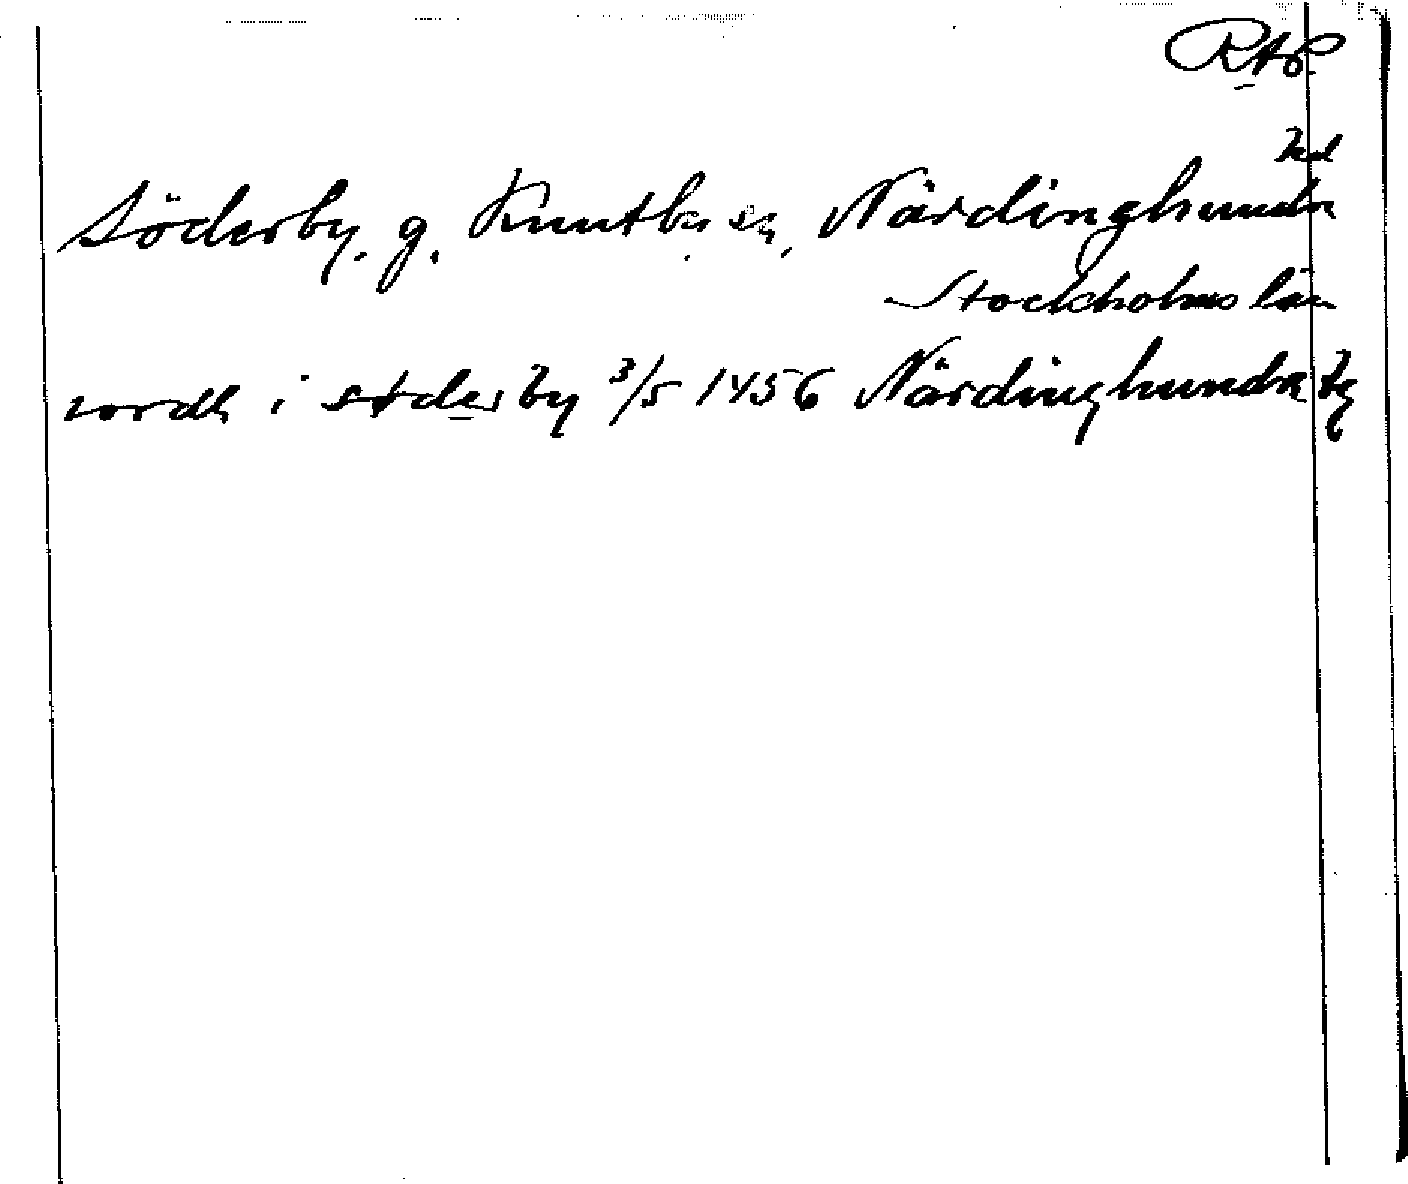 Söderby, g. Knutby sn, Närdinghundra
hd
Stockholms län
nordh i støderby 3/5 1456 Närdinghundra